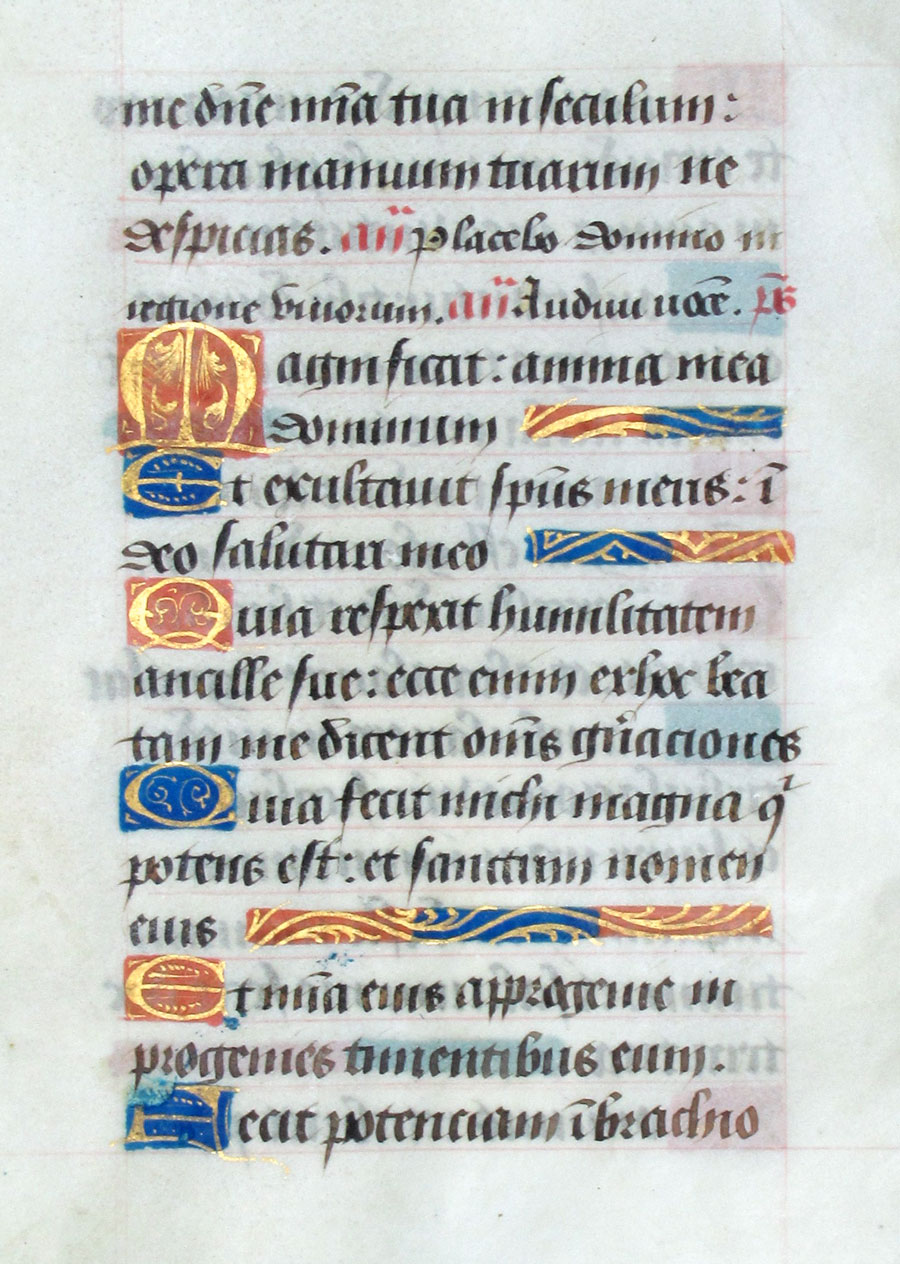 me dñe mĩa tua in seculum:
opera manuum tuarum ne
despicias. añ Placebo domino in
regione vivorum. añ Audivi vocẽ. p̃s
Magnificat: anima mea
dominum
Et exultavit sp̃us meus: ĩ
deo salutari meo
Quia respexit humilitatem
ancille sue: ecce enim ex hoc bea
tam me dicent om̃s gñaciones
Quia fecit michi magna qͥ
potens est: et sanctum nomen
eius
Et mĩa eius a progenie in
progenies timentibus eum.
Fecit potenciam ĩ brachio